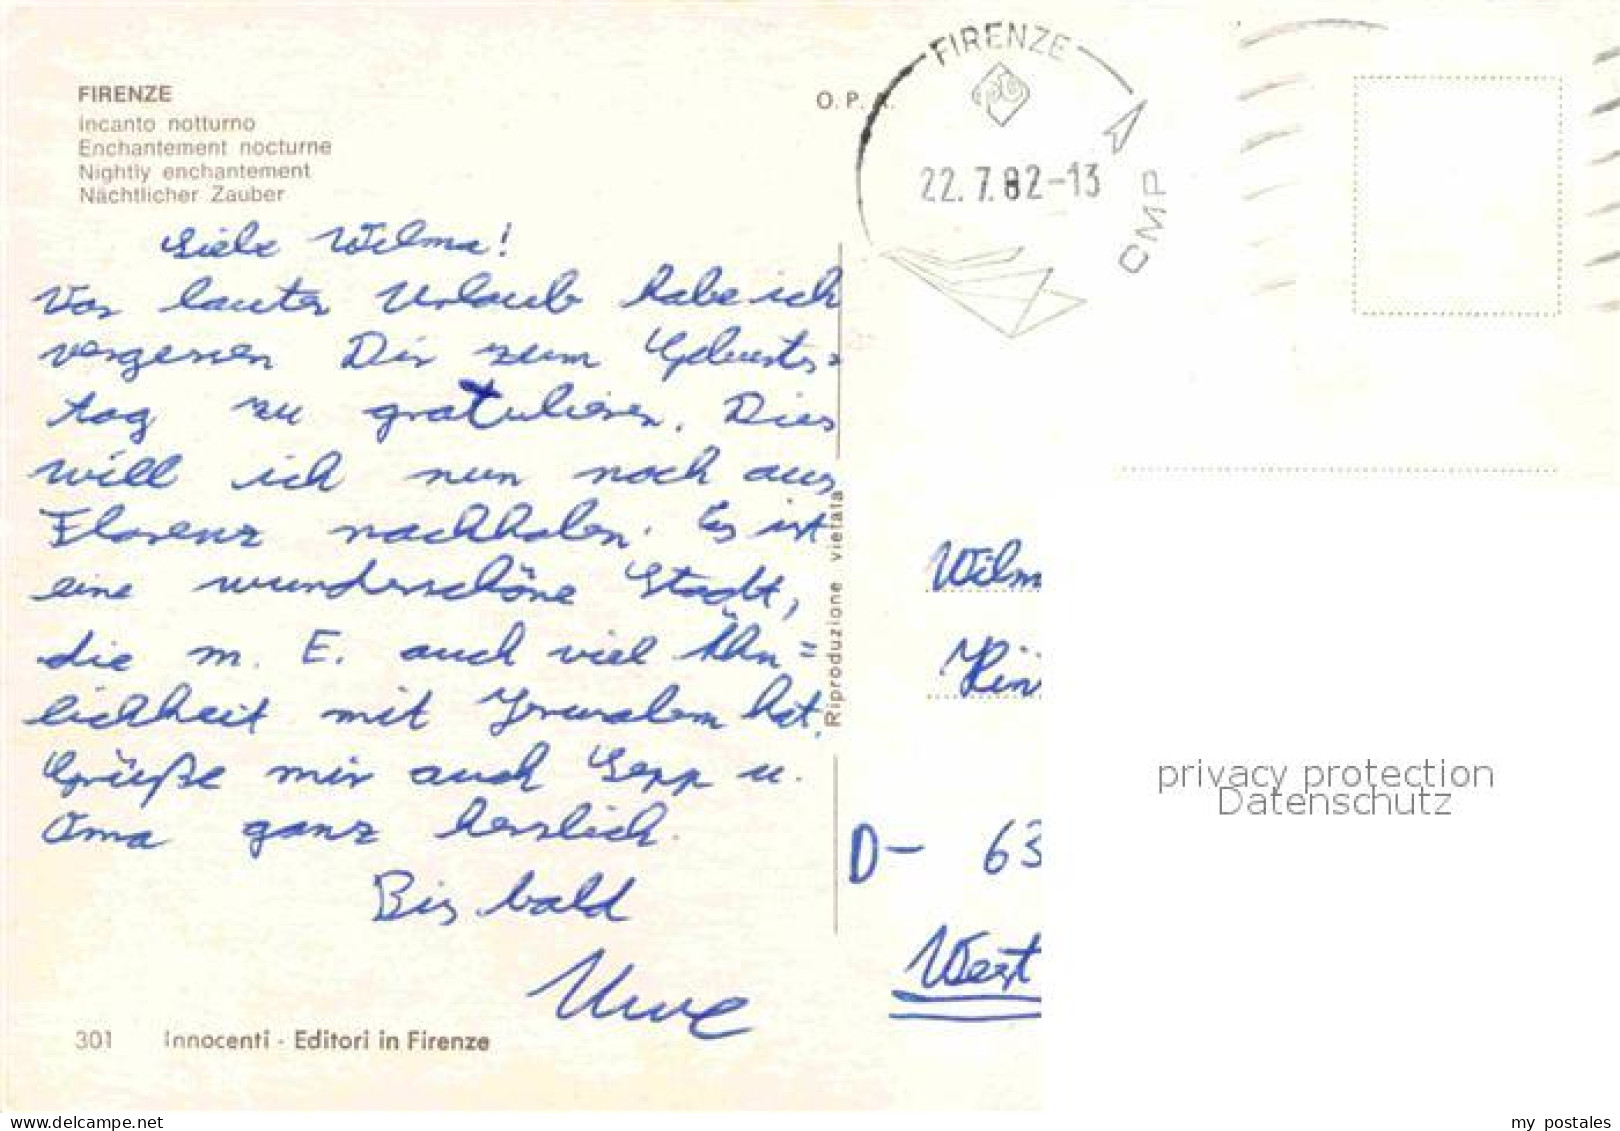 FIRENZE
Incanto notturno
Enchantement nocturne
Nightly enchantement
Nächtlicher Zauber
O. P. A.
FIRENZE
22.7.82-13
CMP
Liebe Wilma!
Vor lauter Urlaub habe ich
vergessen Dir zum Geburts=
tag zu gratulieren. Dies
will ich nun noch aus
Florenz nachholen. Es ist
eine wunderschöne Stadt,
die m. E. auch viel Ähn=
lichkeit mit Jerusalem hat.
Grüße mir auch Sepp u.
Oma ganz herzlich.
Bis bald
Uwe
Riproduzione vietata
Wilm
D- 63
West
privacy protection
Datenschutz
301 Innocenti - Editori in Firenze
my postales